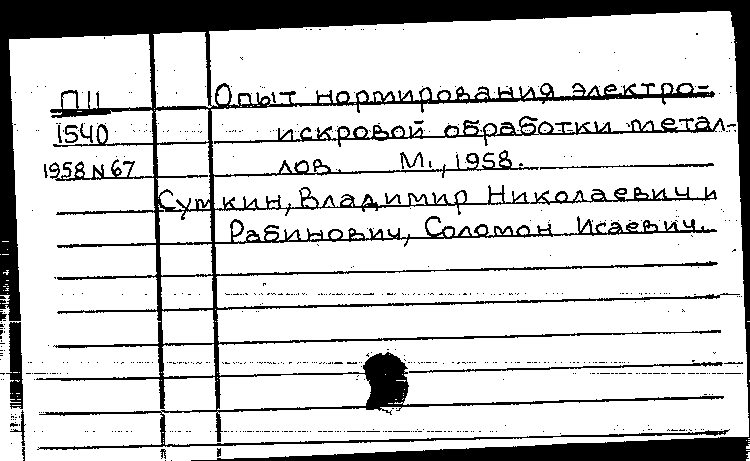 П11 Опыт нормирования электро=
1540 искровой обработки метал-
1958 N 67 лов. М., 1958.
Сумкин, Владимир Николаевич и
Рабинович, Соломон Исаевич.